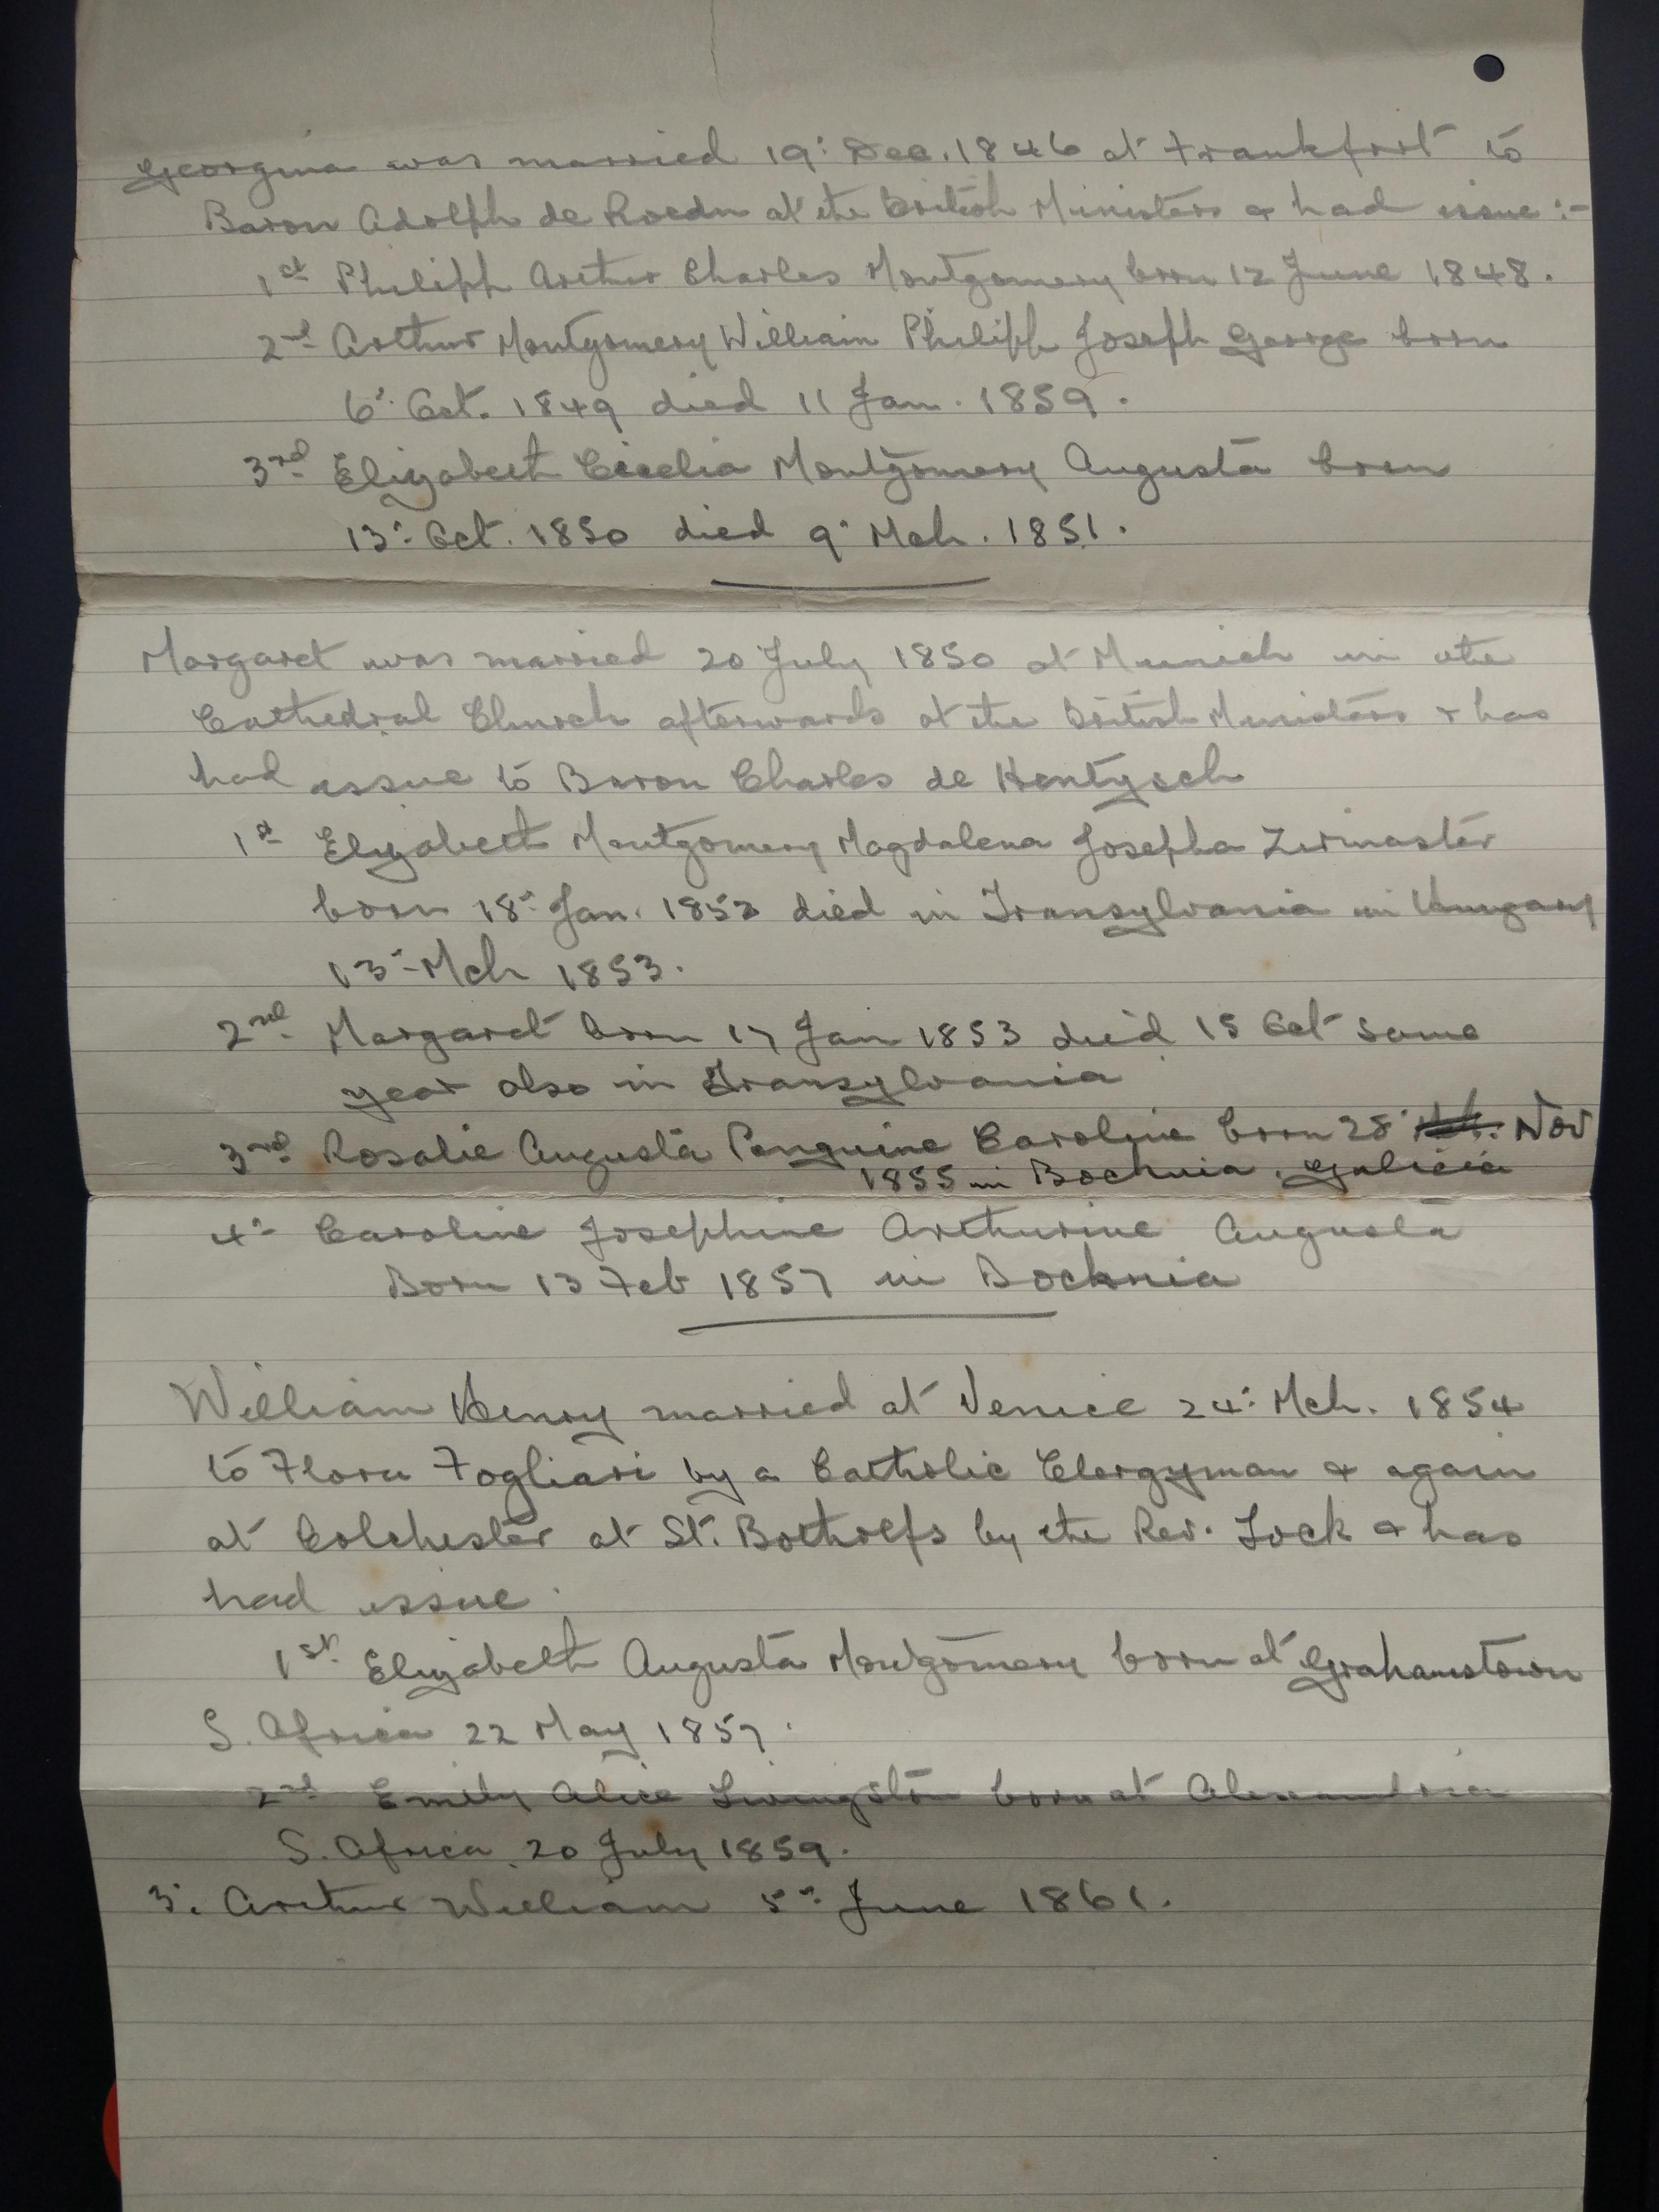 Georgina was married 19: Dec. 1846 at Frankfort to
Baron Adolph de Roedn at the British Ministers & had issue :-
1st Philipp Arthur Charles Montgomery born 12 June 1848.
2nd Arthur Montgomery William Philipp Joseph George born
6: Oct. 1849 died 11 Jan. 1859.
3rd Elizabeth Cecelia Montgomery Augusta born
13: Oct. 1850 died 9: Mch. 1851.
Margaret was married 20 July 1850 at Munich in the
Cathedral Church afterwards at the British Ministers & has
had issue to Baron Charles de Hentzsch
1st Elizabeth Montgomery Magdalena Josepha
born 18: Jan. 1852 died in Transylvania in Hungary
13: Mch 1853.
2nd Margaret born 17 Jan 1853 died 15 Oct same
year also in Transylvania
3rd Rosalie Augusta Caroline born 28: Nov
1855 in Bochnia, Galicia
4: Caroline Josephine Arthurine Augusta
Born 13 Feb 1857 in Bochnia
William Henry married at Venice 24: Mch. 1854
to Flora Fogliari by a Catholic Clergyman & again
at Colchester at St. Botholfs by the Rev. Lock & has
had issue.
1st Elizabeth Augusta Montgomery born at Grahamstown
S. Africa 22 May 1857.
2nd Emily Alice Livingston born at Alexandria
S. Africa, 20 July 1859.
3. Arthur William 5: June 1861.